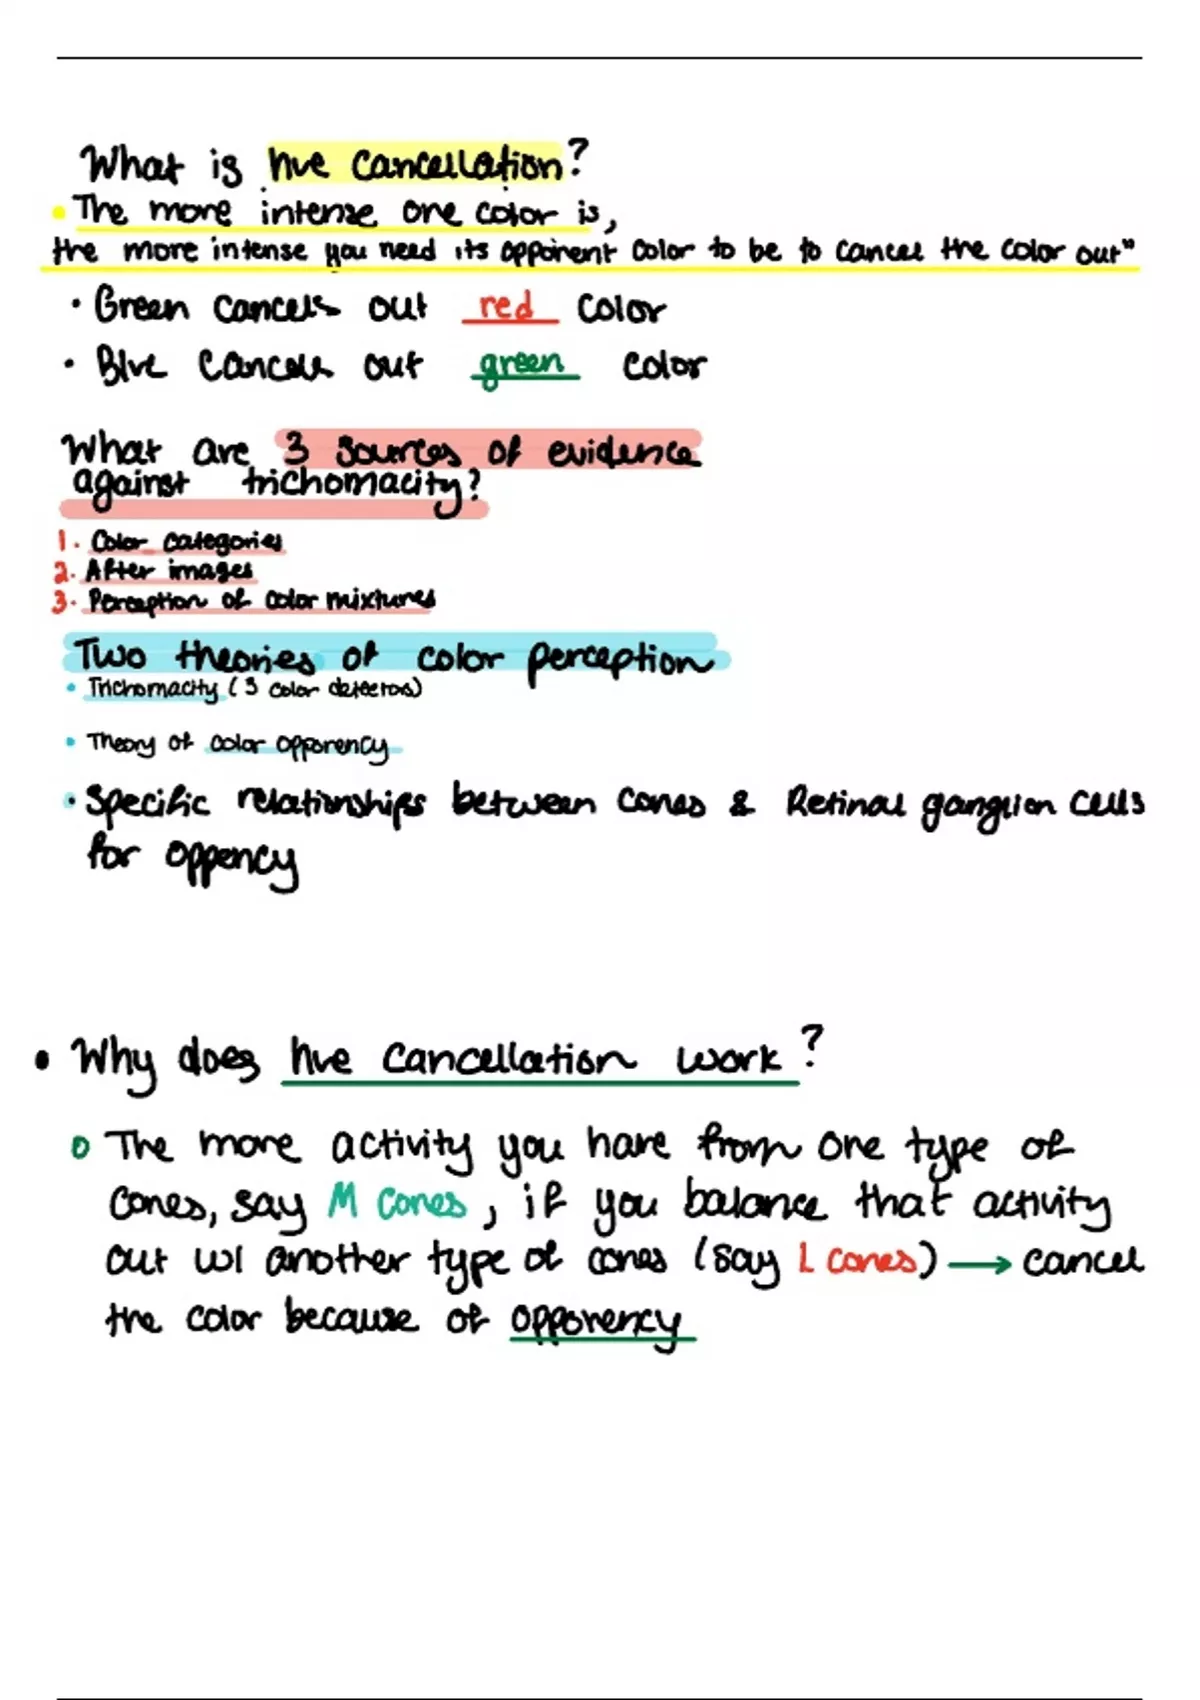 What is hue cancellation?
• The more intense one color is,
the more intense you need its opponent color to be to cancel the color out"
• Green cancels out red color
• Blue cancels out green color
What are 3 sources of evidence
against trichomacity?
1. Color categories
2. After images
3. Perception of color mixtures
Two theories of color perception
• Trichomacity (3 color detectors)
• Theory of color opporency
• Specific relationships between cones & Retinal ganglion cells
for oppency
• Why does hue cancellation work?
o The more activity you have from one type of
cones, say M cones, if you balance that activity
out w/ another type of cones (say L cones) → cancel
the color because of opporency